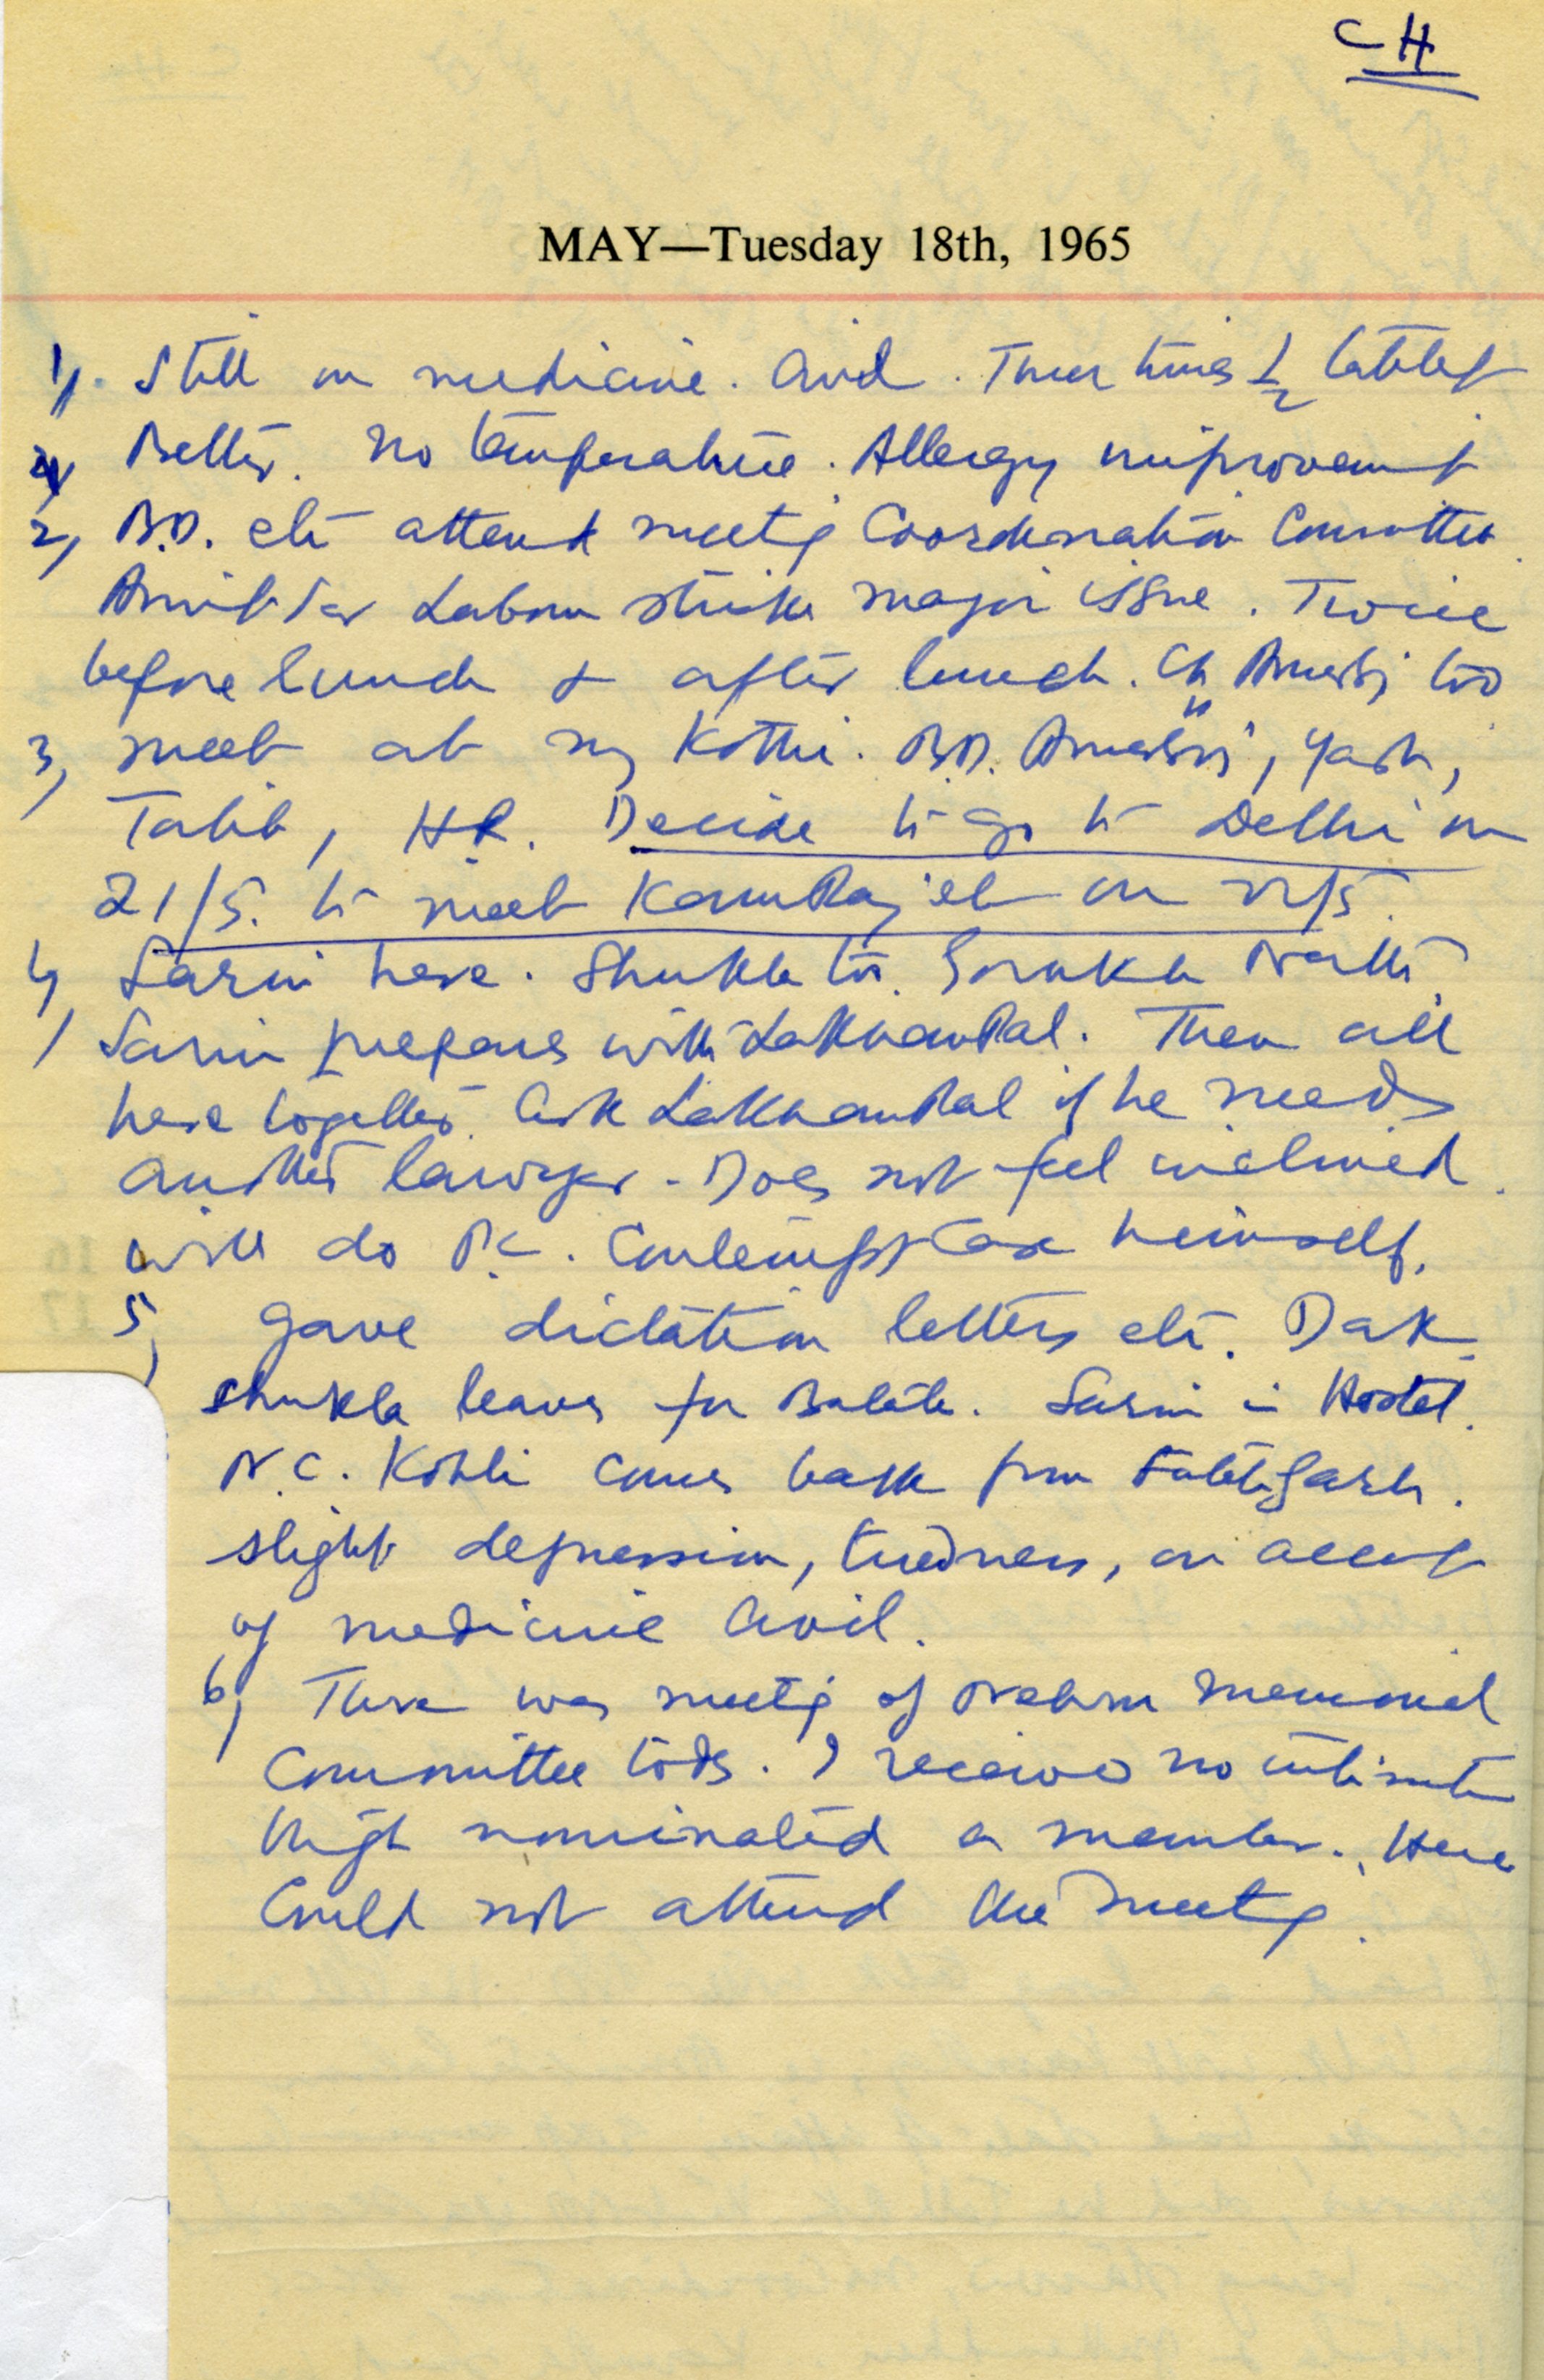 CH
MAY—Tuesday 18th, 1965
1). Still on medicine. Avil. Three times ½ tablet
Better. No temperature. Allergy improvement
2) B.D. etc attend meeting Coordination Committee.
Amritsar Labour strike major issue. Twice
before lunch & after lunch. Ch Amarji too
3) meet at my Kothi. B.D. Amarji, Yash,
Talib, HR. Decide to go to Delhi on
21/5. to meet KamRaj etc on 22/5.
4) Sarin here. Shukla too. Gorakh Nath
Sarin prepares with LakhanPal. Then all
here together. Ask LakhanPal if he needs
another lawyer. Does not feel inclined.
will do P.C. Contempt Case himself.
5) Gave dictation letters etc. Dak.
Shukla leaves for Batala. Sarin in Hostel.
N.C. Kohli comes back from Fatehgarh.
slight depression, tiredness, on account
of medicine Avil.
6) There was meeting of Nehru Memorial
Committee today. I received no intimation
though nominated a member. Hence
Could not attend the meeting.